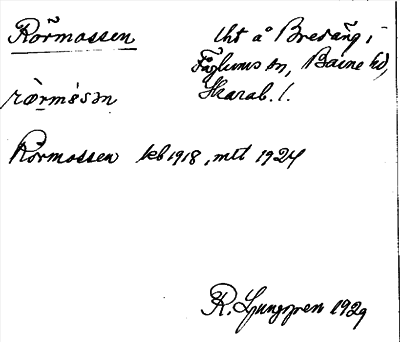 Rörmossen
tht å Bresäng i
Fåglums sn, Barne hd,
Skarab. l.
rö̀rmó̀sən
Rörmossen kb 1918, mtt 1924
R. Ljunggren 1929